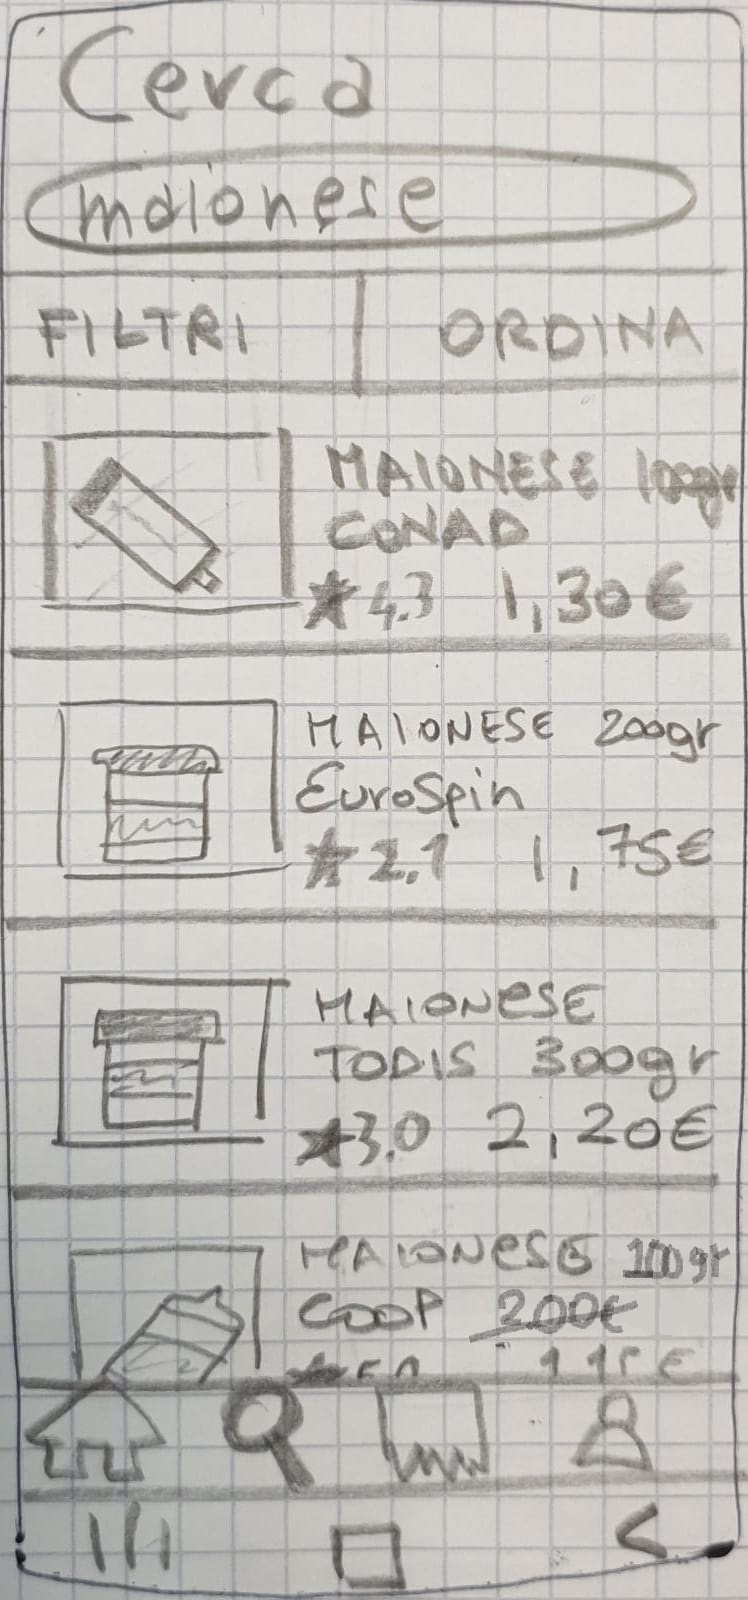 Cerca
maionese
FILTRI | ORDINA
MAIONESE 100gr
CONAD
★ 4.3 1,30€
MAIONESE 200gr
EuroSpin
★ 2.1 1,75€
MAIONESE
TODIS 300gr
★ 3.0 2,20€
MAIONESE 100gr
COOP 2.00€